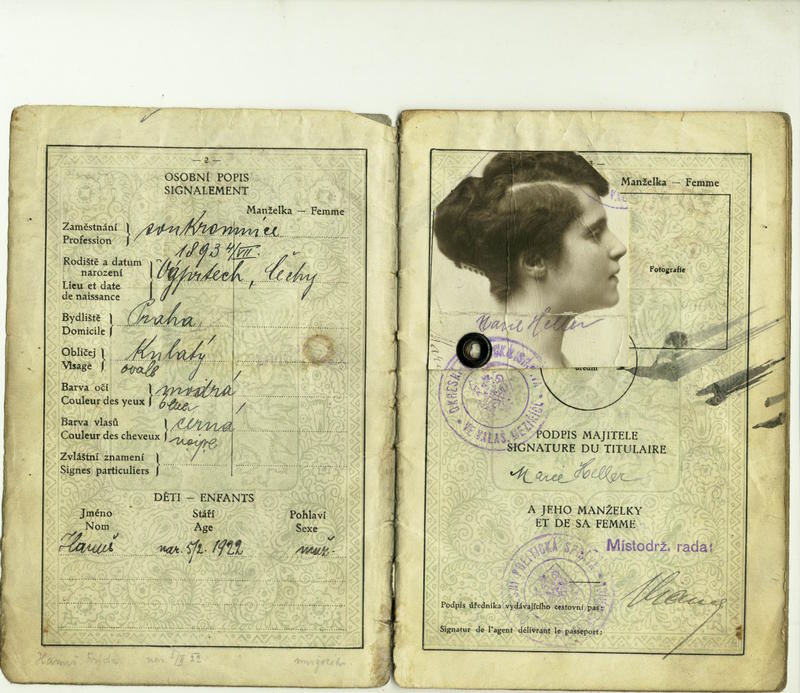 — 2 —
OSOBNÍ POPIS
SIGNALEMENT
Manželka — Femme
Zaměstnání
Profession
soukromnice
1893 4/VII.
Rodiště a datum
narození
Lieu et date
de naissance
Vejprtech, Čechy
Bydliště
Domicile
Praha,
Obličej
Visage
Kulatý
ovale
Barva očí
Couleur des yeux
modrá
bleu
Barva vlasů
Couleur des cheveux
černá
noire
Zvláštní znamení
Signes particuliers
DĚTI — ENFANTS
Jméno
Nom
Stáří
Age
Pohlaví
Sexe
Hanuš nar. 5/2. 1922 muž.
Hanuš
Manželka — Femme
Fotografie
Marie Heller
úřední
VE VALAŠ. MEZIŘÍČÍ
PODPIS MAJITELE
SIGNATURE DU TITULAIRE
Marie Heller
A JEHO MANŽELKY
ET DE SA FEMME
POLITICKÁ SPRÁVA
Místodrž. rada:
Podpis úředníka vydávajícího cestovní pas:
Signatur de l'agent délivrant le passeport: